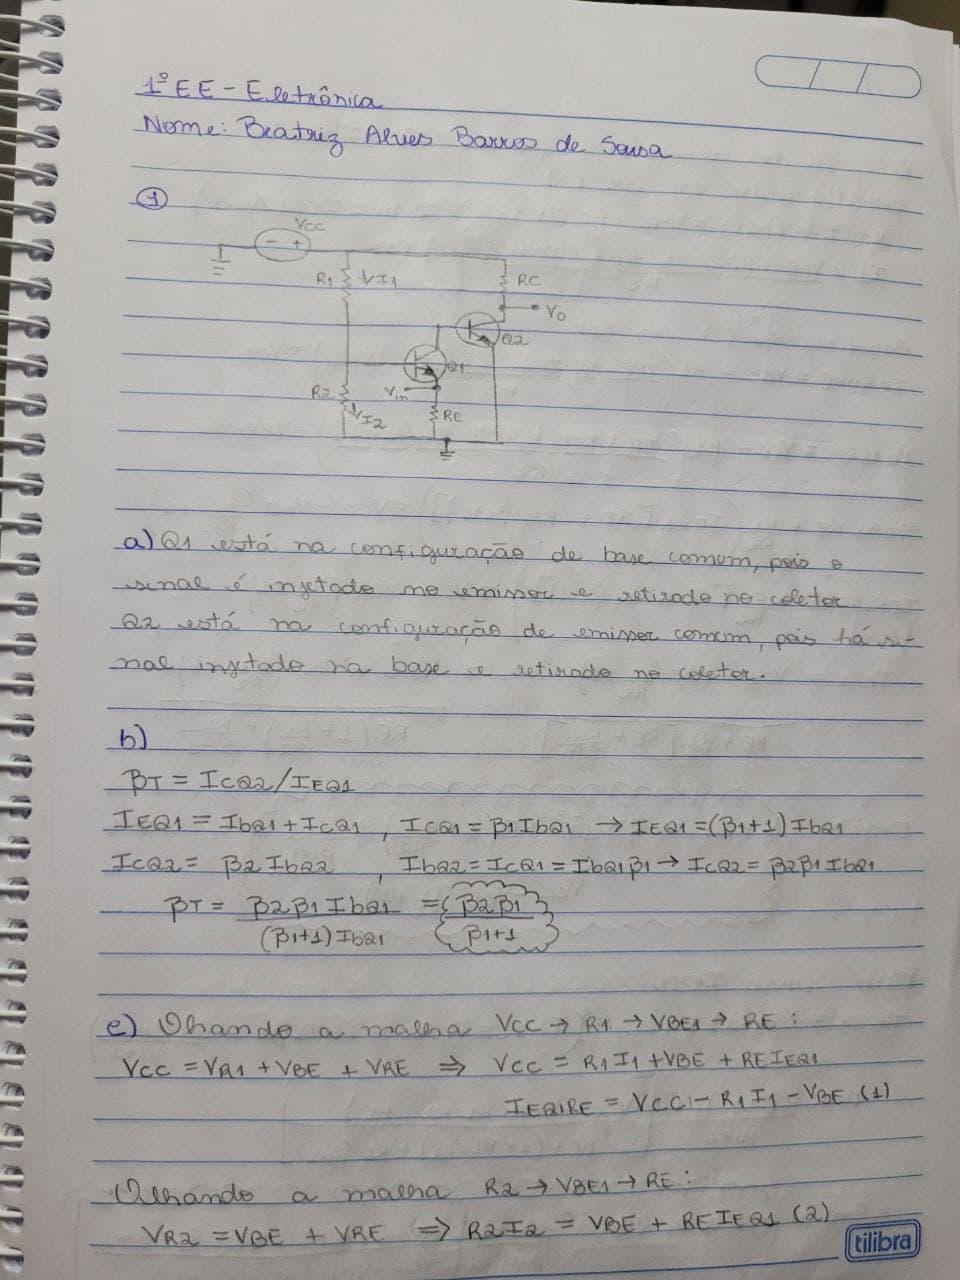 1º EE - Eletrônica
Nome: Beatriz Alves Barros de Sousa
1
VCC
- +
R1 I1 RC
VO
Q2
Q1
R2 Vin
I2 RE
a) Q1 está na configuração de base comum, pois o
sinal é injetado no emissor e retirado no coletor.
Q2 está na configuração de emissor comum, pois há si-
nal injetado na base e retirado no coletor.
b)
βT = ICQ2/IEQ1
IEQ1 = IbQ1 + ICQ1 , ICQ1 = β1IbQ1 → IEQ1 = (β1+1)IbQ1
ICQ2 = β2IbQ2 , IbQ2 = ICQ1 = IbQ1β1 → ICQ2 = β2β1IbQ1
βT = β2β1IbQ1 = β2β1
(β1+1)IbQ1 β1+1
c) Olhando a malha VCC → R1 → VBE1 → RE:
VCC = VR1 + VBE + VRE ⇒ VCC = R1I1 + VBE + REIEQ1
IEQ1RE = VCC - R1I1 - VBE (1)
Olhando a malha R2 → VBE1 → RE:
VR2 = VBE + VRE ⇒ R2I2 = VBE + REIEQ1 (2)
tilibra